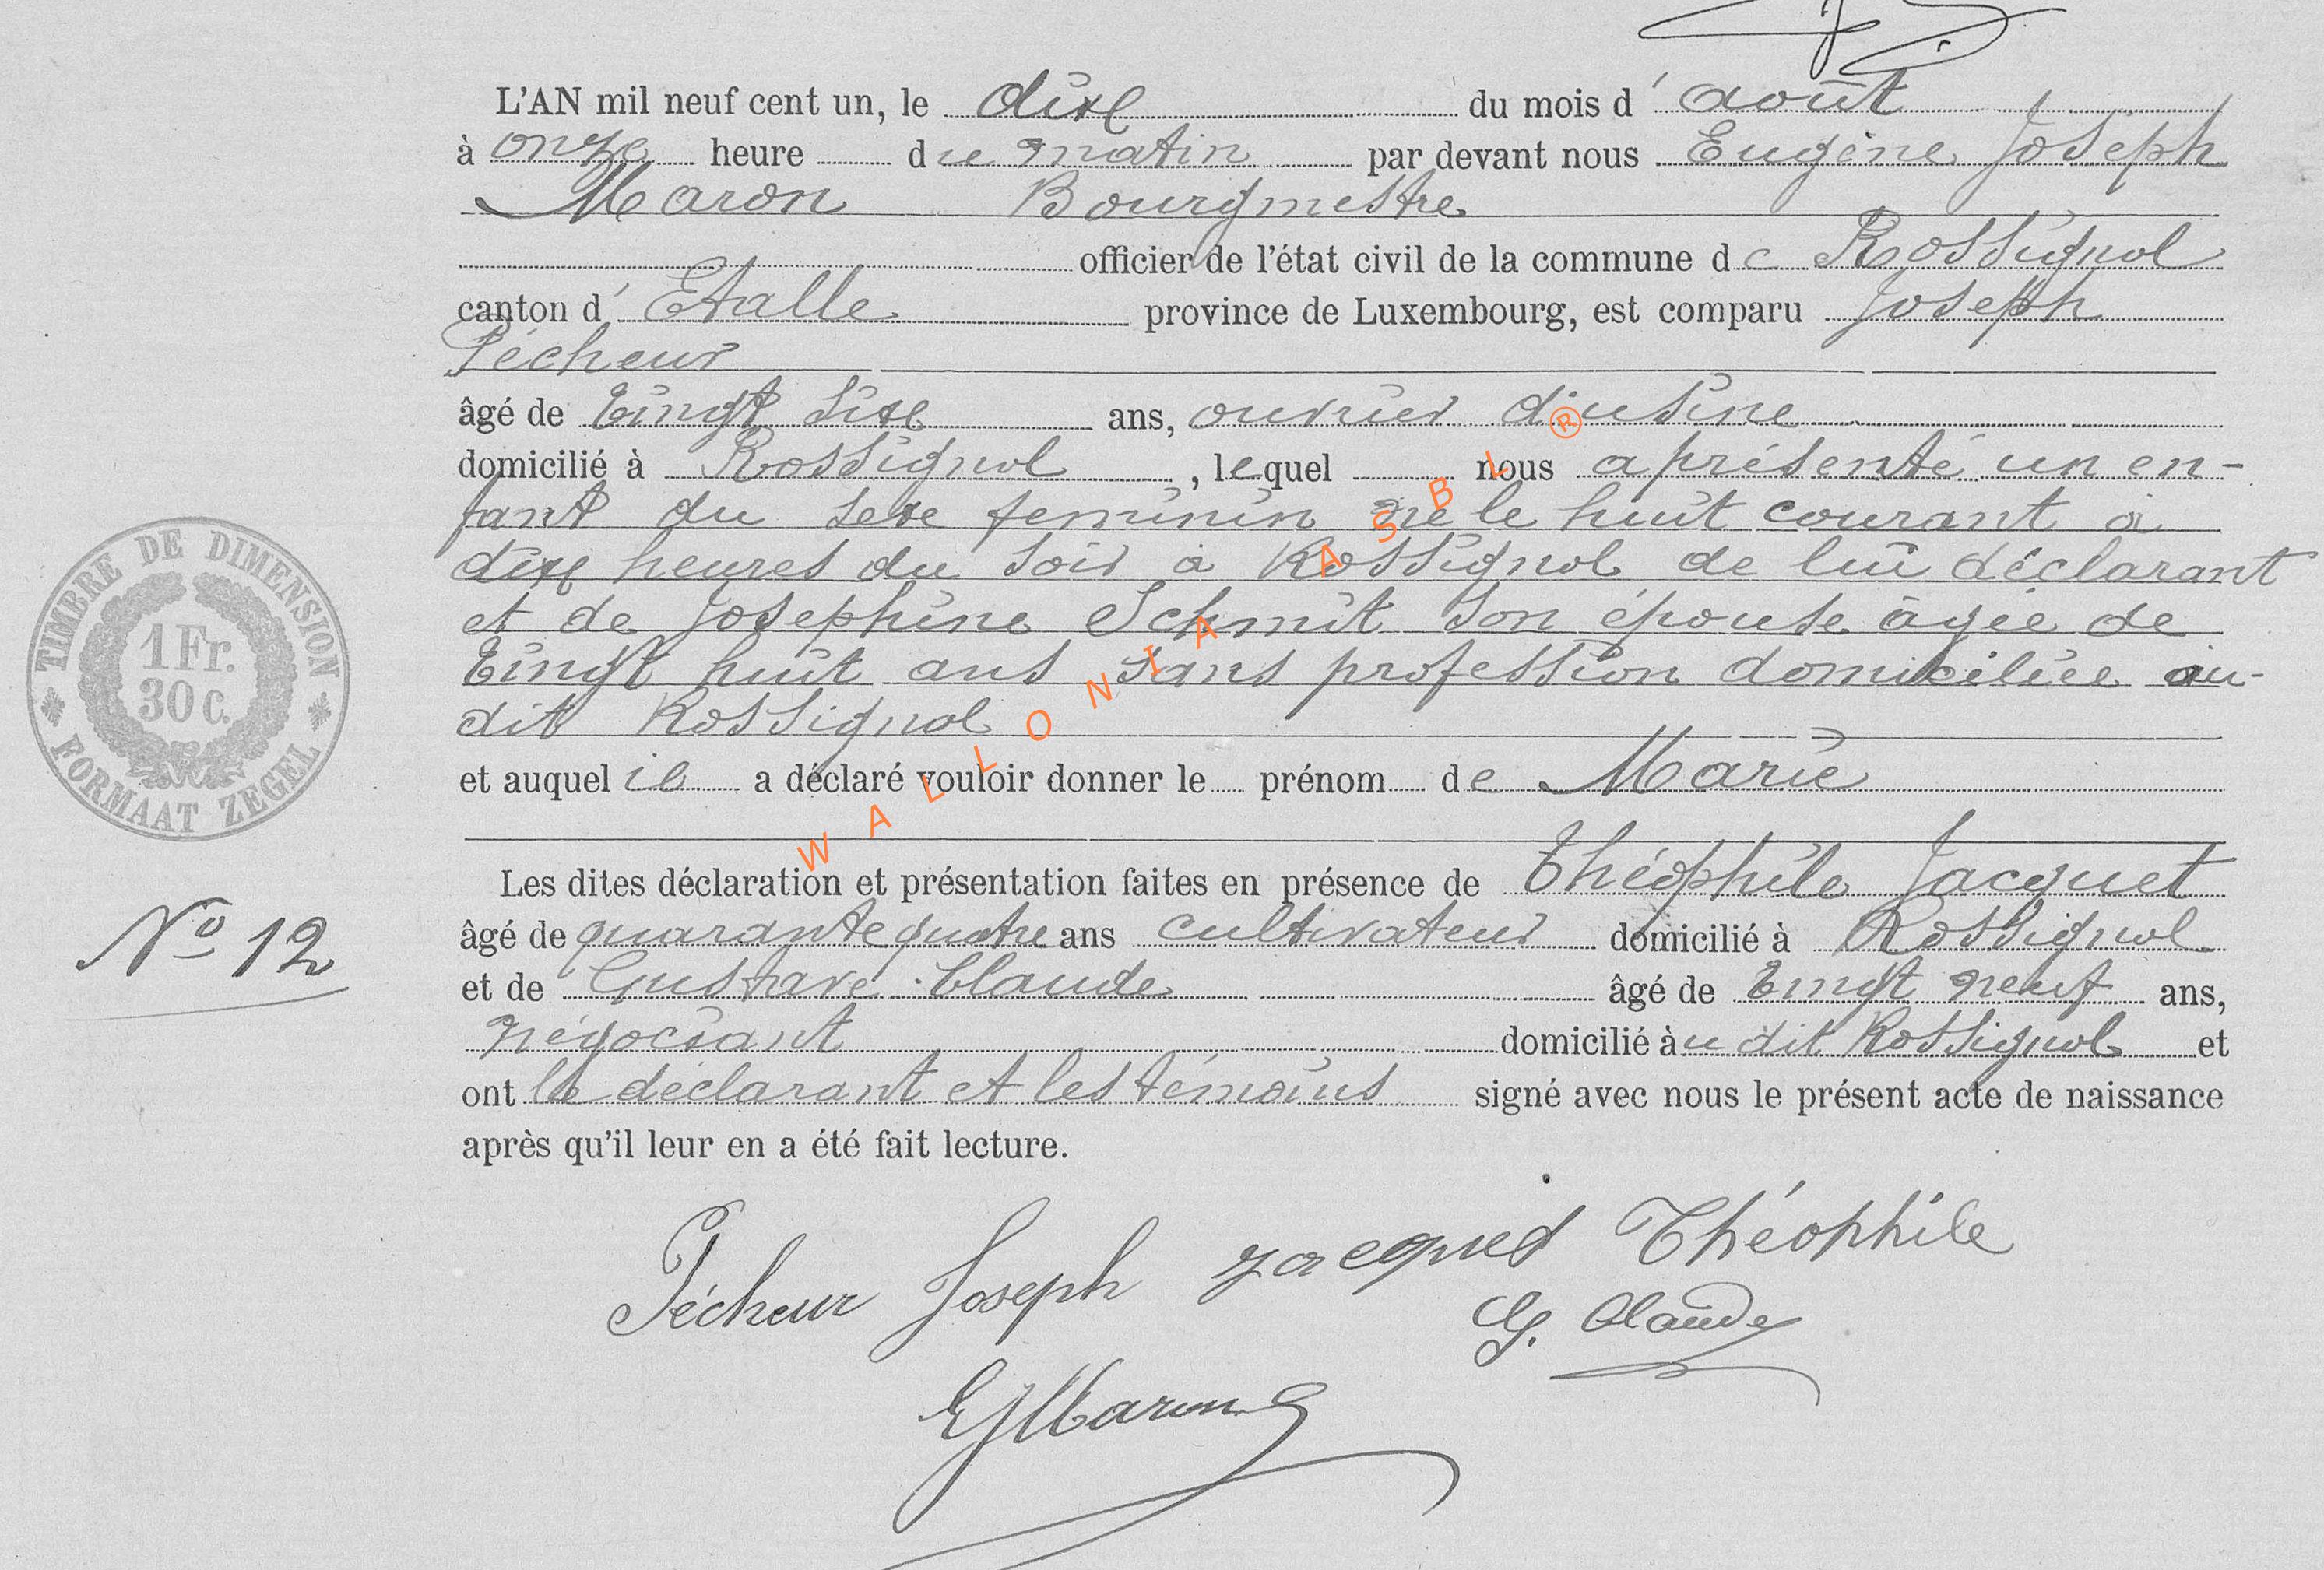 L'AN mil neuf cent un, le dix du mois d' août
à onze heure du matin par devant nous Eugène Joseph
Maron Bourgmestre
officier de l'état civil de la commune de Rossignol
canton d' Etalle province de Luxembourg, est comparu Joseph
Pécheur
âgé de Vingt six ans, ouvrier d'usine
domicilié à Rossignol, lequel nous a présenté un en-
fant du sexe feminin né le huit courant à
dix heures du soir à Rossignol de lui déclarant
et de Josephine Schmit son épouse âgée de
Vingt huit ans sans profession domiciliée au-
dit Rossignol
et auquel il a déclaré vouloir donner le prénom de Marie
Les dites déclaration et présentation faites en présence de Théophile Jacquet
âgé de quarante quatre ans cultivateur domicilié à Rossignol
et de Gustave Claude âgé de Vingt neuf ans,
négociant domicilié àu dit Rossignol et
ont le déclarant et les témoins signé avec nous le présent acte de naissance
après qu'il leur en a été fait lecture.
Pécheur Joseph Jacquet Théophile
G. Claude
EJMaron
TIMBRE DE DIMENSION
1 Fr.
30 c.
FORMAAT ZEGEL
No 12
WALLONIA ASBL ®